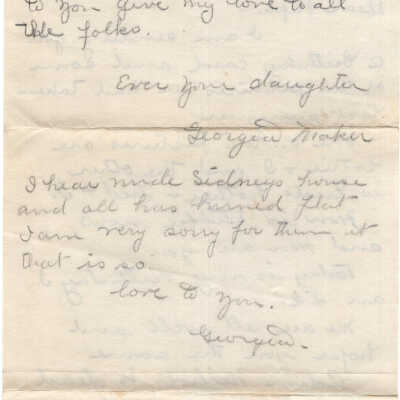 to you give my love to all
the folks.
Ever your daughter
Georgia Maker
I hear uncle Sidneys house
and all has burned flat
I am very sorry for them if
that is so.
love to you.
Georgia.